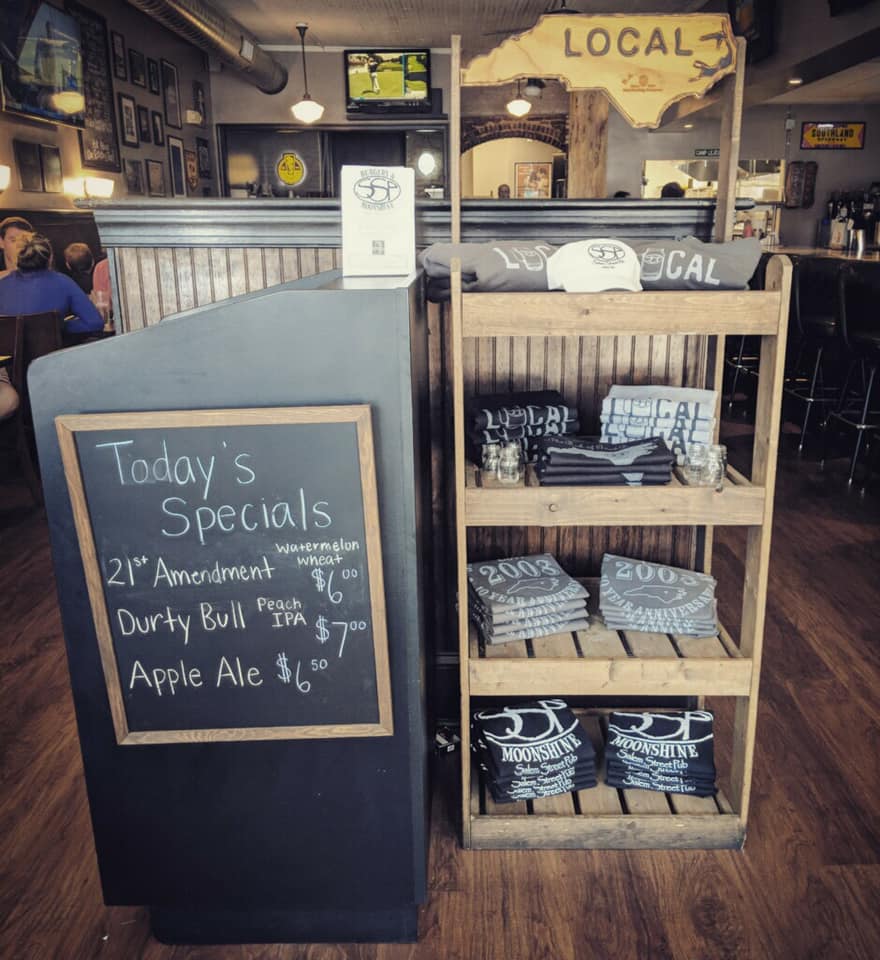 LOCAL
SOUTHLAND
BURGERS &
SSP
MOONSHINE
LOCAL
SSP
LOCAL
Today's
Specials
21st Amendment Watermelon
wheat
$6.00
Durty Bull Peach
IPA
$7.00
Apple Ale $6.50
LOCAL
LOCAL
2008
10 YEAR ANNIVERSARY
2008
10 YEAR ANNIVERSARY
SSP
MOONSHINE
Salem Street Pub
SSP
MOONSHINE
Salem Street Pub